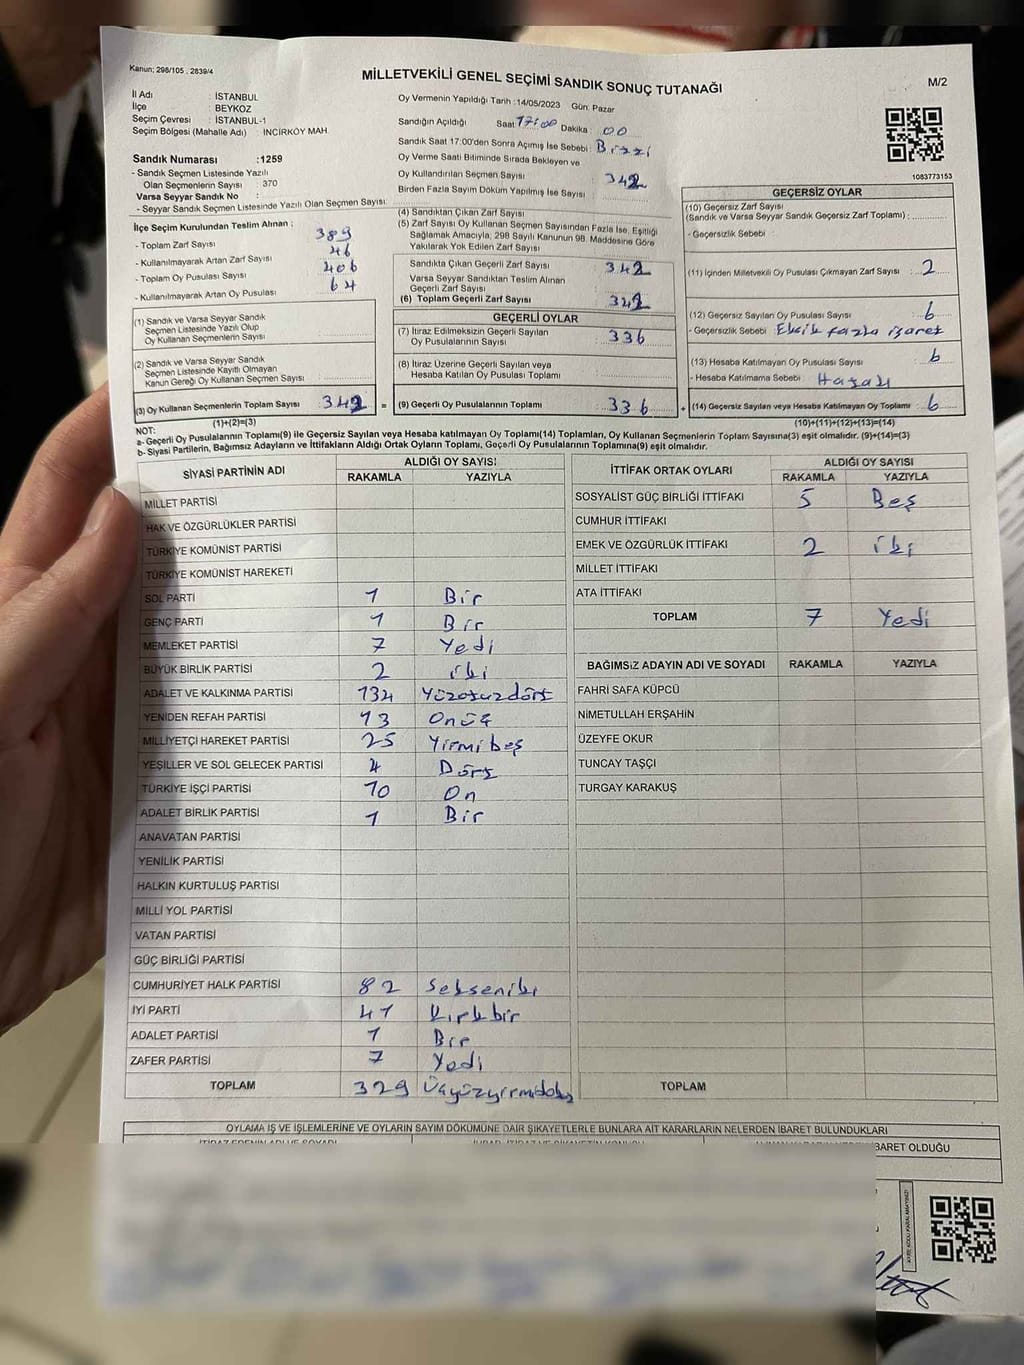 Kanun; 298/105 , 2839/4
MİLLETVEKİLİ GENEL SEÇİMİ SANDIK SONUÇ TUTANAĞI
M/2
İl Adı : İSTANBUL
İlçe : BEYKOZ
Seçim Çevresi : İSTANBUL-1
Seçim Bölgesi (Mahalle Adı) : İNCİRKÖY MAH.
Sandık Numarası :1259
- Sandık Seçmen Listesinde Yazılı
Olan Seçmenlerin Sayısı : 370
Varsa Seyyar Sandık No :
- Seyyar Sandık Seçmen Listesinde Yazılı Olan Seçmen Sayısı:
Oy Vermenin Yapıldığı Tarih :14/05/2023 Gün: Pazar
Sandığın Açıldığı Saat 17:00 Dakika : 00
Sandık Saat 17:00'den Sonra Açımış İse Sebebi:
Oy Verme Saati Bitiminde Sırada Bekleyen ve
Oy Kullandırılan Seçmen Sayısı : 342
Birden Fazla Sayım Döküm Yapılmış İse Sayısı :
1083773153
İlçe Seçim Kurulundan Teslim Alınan :
- Toplam Zarf Sayısı 389
- Kullanılmayarak Artan Zarf Sayısı : 46
- Toplam Oy Pusulası Sayısı : 406
- Kullanılmayarak Artan Oy Pusulası : 64
(1) Sandık ve Varsa Seyyar Sandık
Seçmen Listesinde Yazılı Olup
Oy Kullanan Seçmenlerin Sayısı :
(2) Sandık ve Varsa Seyyar Sandık
Seçmen Listesinde Kayıtlı Olmayan
Kanun Gereği Oy Kullanan Seçmen Sayısı :
(3) Oy Kullanan Seçmenlerin Toplam Sayısı 342 =
(1)+(2)=(3)
(4) Sandıktan Çıkan Zarf Sayısı
(5) Zarf Sayısı Oy Kullanan Seçmen Sayısından Fazla İse, Eşitliği
Sağlamak Amacıyla; 298 Sayılı Kanunun 98. Maddesine Göre
Yakılarak Yok Edilen Zarf Sayısı
Sandıkta Çıkan Geçerli Zarf Sayısı : 342
Varsa Seyyar Sandıktan Teslim Alınan
Geçerli Zarf Sayısı :
(6) Toplam Geçerli Zarf Sayısı : 342
GEÇERLİ OYLAR
(7) İtiraz Edilmeksizin Geçerli Sayılan
Oy Pusulalarının Sayısı : 336
(8) İtiraz Üzerine Geçerli Sayılan veya
Hesaba Katılan Oy Pusulası Toplamı :
(9) Geçerli Oy Pusulalarının Toplamı : 336 +
GEÇERSİZ OYLAR
(10) Geçersiz Zarf Sayısı
(Sandık ve Varsa Seyyar Sandık Geçersiz Zarf Toplamı) :
- Geçersizlik Sebebi :
(11) İçinden Milletvekili Oy Pusulası Çıkmayan Zarf Sayısı : 2
(12) Geçersiz Sayılan Oy Pusulası Sayısı : 6
- Geçersizlik Sebebi : Eksik fazla işaret
(13) Hesaba Katılmayan Oy Pusulası Sayısı : 6
- Hesaba Katılmama Sebebi : Hatalı
(14) Geçersiz Sayılan veya Hesaba Katılmayan Oy Toplamı : 6
(10)+(11)+(12)+(13)=(14)
NOT:
a- Geçerli Oy Pusulalarının Toplamı(9) ile Geçersiz Sayılan veya Hesaba katılmayan Oy Toplamı(14) Toplamları, Oy Kullanan Seçmenlerin Toplam Sayısına(3) eşit olmalıdır. (9)+(14)=(3)
b- Siyasi Partilerin, Bağımsız Adayların ve İttifakların Aldığı Ortak Oyların Toplamı, Geçerli Oy Pusulalarının Toplamına(9) eşit olmalıdır.
SİYASİ PARTİNİN ADI ALDIĞI OY SAYISI
RAKAMLA YAZIYLA
MİLLET PARTİSİ
HAK VE ÖZGÜRLÜKLER PARTİSİ
TÜRKİYE KOMÜNİST PARTİSİ
TÜRKİYE KOMÜNİST HAREKETİ
SOL PARTİ 1 Bir
GENÇ PARTİ 1 Bir
MEMLEKET PARTİSİ 7 Yedi
BÜYÜK BİRLİK PARTİSİ 2 iki
ADALET VE KALKINMA PARTİSİ 134 Yüzotuzdört
YENİDEN REFAH PARTİSİ 13 Onüç
MİLLİYETÇİ HAREKET PARTİSİ 25 Yirmibeş
YEŞİLLER VE SOL GELECEK PARTİSİ 4 Dört
TÜRKİYE İŞÇİ PARTİSİ 10 On
ADALET BİRLİK PARTİSİ 1 Bir
ANAVATAN PARTİSİ
YENİLİK PARTİSİ
HALKIN KURTULUŞ PARTİSİ
MİLLİ YOL PARTİSİ
VATAN PARTİSİ
GÜÇ BİRLİĞİ PARTİSİ
CUMHURİYET HALK PARTİSİ 82 Sekseniki
İYİ PARTİ 41 Kırkbir
ADALET PARTİSİ 1 Bir
ZAFER PARTİSİ 7 Yedi
TOPLAM 329 Üçyüzyirmidokuz
İTTİFAK ORTAK OYLARI ALDIĞI OY SAYISI
RAKAMLA YAZIYLA
SOSYALİST GÜÇ BİRLİĞİ İTTİFAKI 5 Beş
CUMHUR İTTİFAKI
EMEK VE ÖZGÜRLÜK İTTİFAKI 2 iki
MİLLET İTTİFAKI
ATA İTTİFAKI
TOPLAM 7 Yedi
BAĞIMSIZ ADAYIN ADI VE SOYADI RAKAMLA YAZIYLA
FAHRİ SAFA KÜPCÜ
NİMETULLAH ERŞAHİN
ÜZEYFE OKUR
TUNCAY TAŞÇI
TURGAY KARAKUŞ
TOPLAM
OYLAMA İŞ VE İŞLEMLERİNE VE OYLARIN SAYIM DÖKÜMÜNE DAİR ŞİKAYETLERLE BUNLARA AİT KARARLARIN NELERDEN İBARET BULUNDUKLARI
BARET OLDUĞU